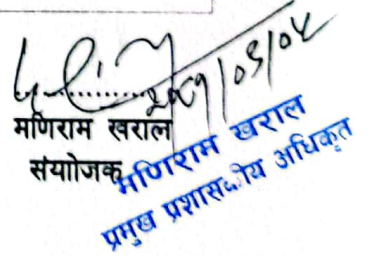 मणिराम खराल
संयोजक
मणिराम खराल
प्रमुख प्रशासकीय अधिकृत